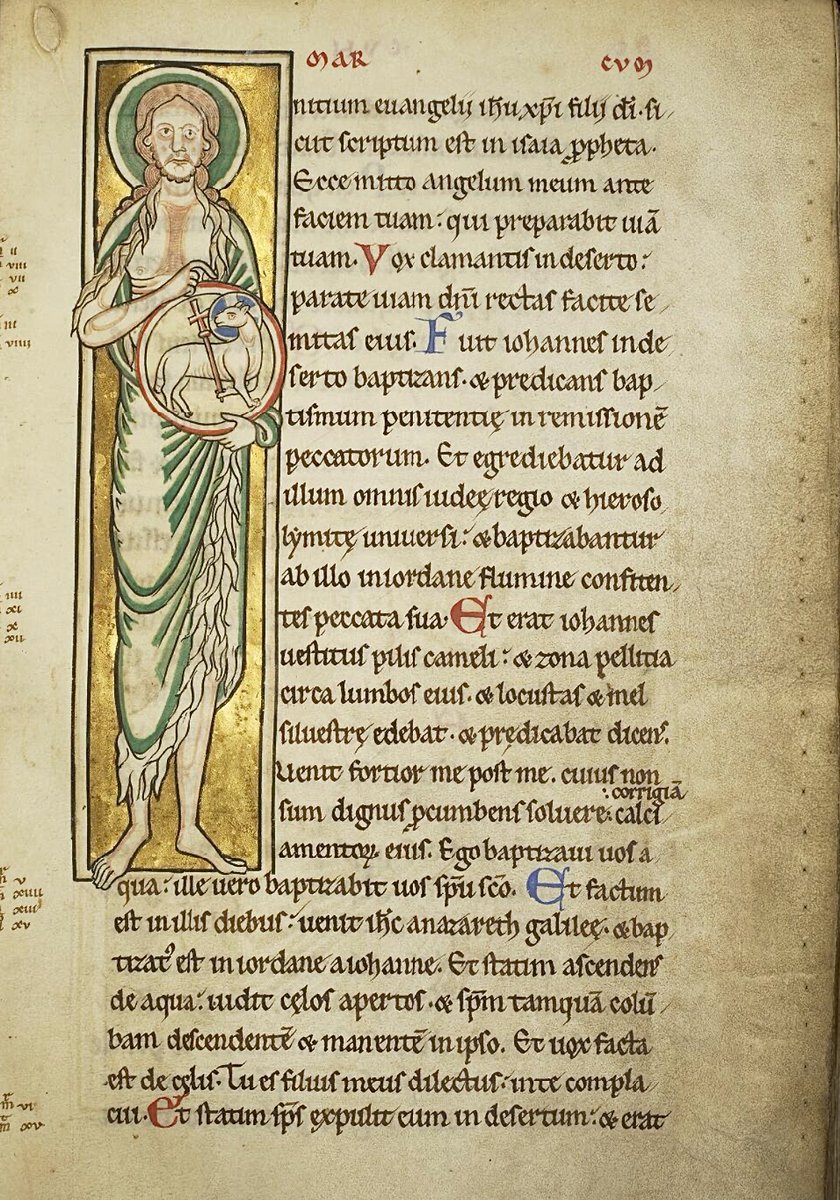 MAR CUM
nitium euangelij ihu xpi filij di. si
cut scriptum est in isaia ppheta.
Ecce mitto angelum meum ante
faciem tuam: qui preparabit uiā
tuam. Vox clamantis in deserto:
parate uiam dnī rectas facite se
mitas eius. Fuit iohannes in de
serto baptizans. & predicans bap
tismum penitentię in remissionē
peccatorum. Et egrediebatur ad
illum omnis iudeę regio & hieroso
lymitę uniuersi: & baptizabantur
ab illo in iordane flumine confiten
tes peccata sua. Et erat iohannes
uestitus pilis cameli: & zona pellitia
circa lumbos eius. & locustas & mel
siluestrę edebat. & prędicabat dicens.
Uenit fortior me post me. cuius non
corrigiā
sum dignus pcumbens soluere calci
amentoꝝ eius. Ego baptizaui uos a
qua: ille uero baptizabit uos spū scō. Et factum
est in illis diebus: uenit ihc a nazareth galileę. & bap
tizatꝰ est in iordane a iohanne. Et statim ascendens
de aqua: uidit cęlos apertos. & spm̄ tamquā colū
bam descendentē & manentē in ipso. Et uox facta
est de cęlis. Tu es filius meus dilectus: in te compla
cui. Et statim sp̄s expulit eum in desertum: & erat